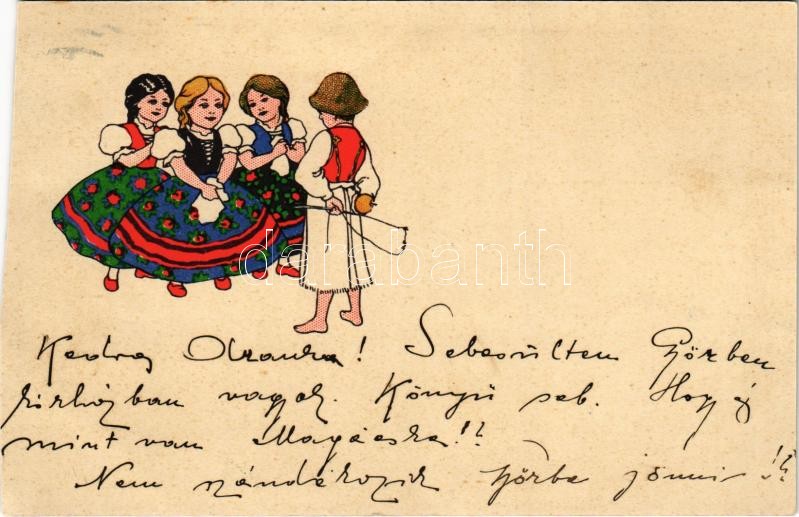 darabanth
Kedves Olranka! Sebesülten Győrben
kórházban vagyok. Könnyű seb. Hogy és
mint van Magácska!?
Nem szándékozik Győrbe jönni!?